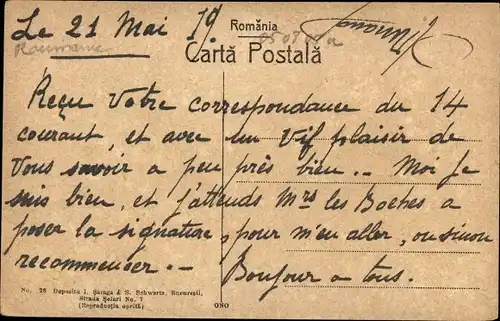 Le 21 Mai 19.
România
Roumanie
Cartă Poștală
Reçu votre correspondance du 14
courant, et avec un vif plaisir de
vous savoir a peu près bien.- Moi je
suis bien, et j'attends Mrs les Boches a
poser la signature, pour m'en aller, ou sinon
recommencer.-
Bonjour a tous.
No. 28 Depozitu I. Șaraga & S. Schwartz, București,
Strada Șelari No. 7
(Reproducția oprită)
ONO